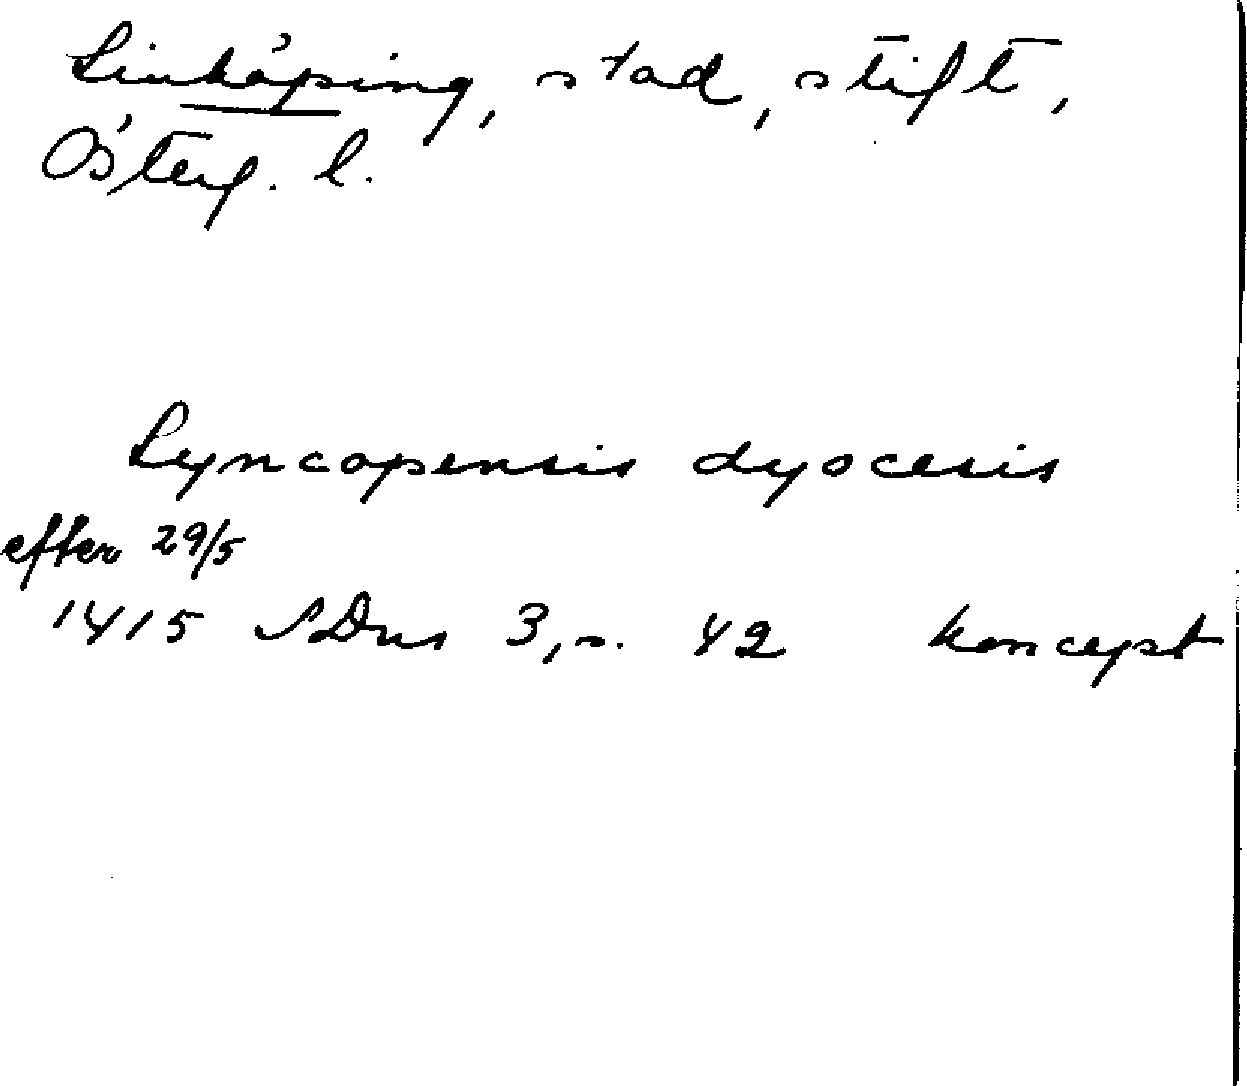 Linköping, stad, stift,
Österg. l.
Lyncopensis dyocesis
efter 29/5
1415 SDns 3, s. 42 koncept